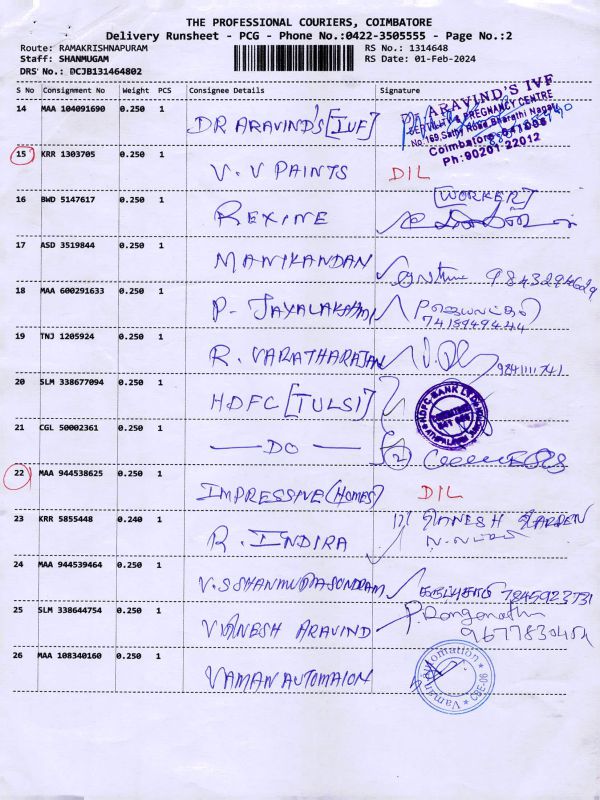 THE PROFESSIONAL COURIERS, COIMBATORE
Delivery Runsheet - PCG - Phone No.:0422-3505555 - Page No.:2
Route: RAMAKRISHNAPURAM RS No.: 1314648
Staff: SHANMUGAM RS Date: 01-Feb-2024
DRS No.: DCJB131464802
S No Consignment No Weight PCS Consignee Details Signature
14 MAA 104091690 0.250 1 DR ARAVIND'S [IVF]
Dr. ARAVIND'S IVF
FERTILITY & PREGNANCY CENTRE
No.169, Sathy Road, Bharathi Nagar,
Coimbatore
Ph: 90201 22012
15 KRR 1303705 0.250 1 V.V PAINTS DIL
16 BWD 5147617 0.250 1 REXINE [WORKER]
17 ASD 3519844 0.250 1 MANIKANDAN 9843294629
18 MAA 600291633 0.250 1 P. JAYALAKSHMI
7418949444
19 TNJ 1205924 0.250 1 R. VARATHARAJAN 9841111741
20 SLM 338677094 0.250 1 HDFC [TULSI] HDFC BANK LTD
21 CGL 50002361 0.250 1 — DO — (2)
22 MAA 944538625 0.250 1 IMPRESSIVE (HOMES) DIL
23 KRR 5855448 0.240 1 R. INDIRA GANESH GARDEN
24 MAA 944539464 0.250 1 V.S SHANMUGASUNDRAM 7845923731
25 SLM 338644754 0.250 1 VIGNESH ARAVIND P. Ranganathan
9677830454
26 MAA 108340160 0.250 1 VAMAN AUTOMAION Vaman Automation CBE-06